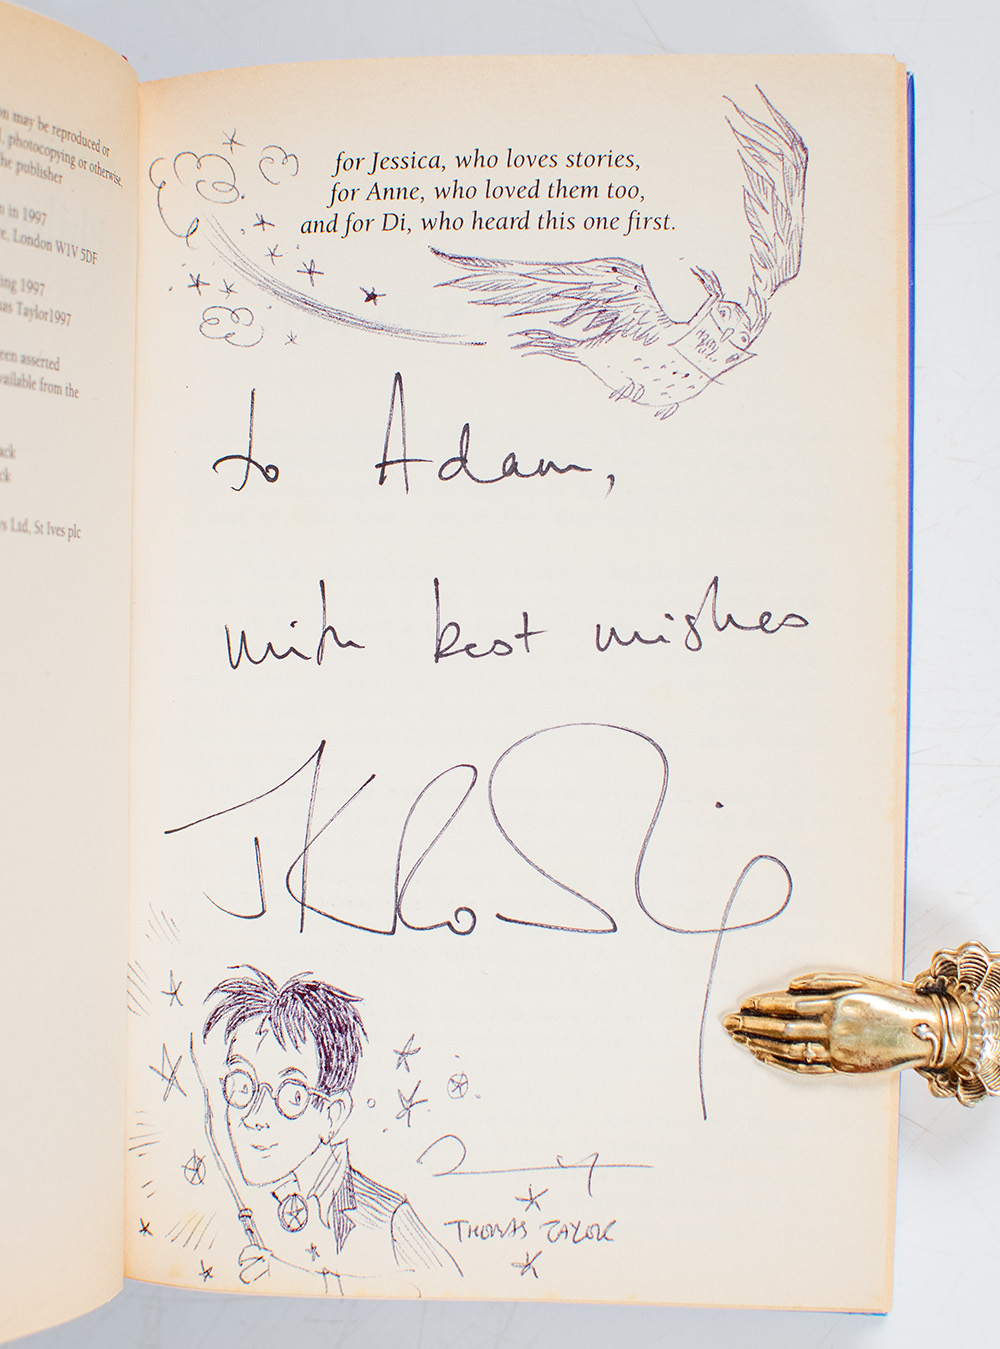 on may be reproduced or
, photocopying or otherwise,
he publisher
n in 1997
e, London W1V 5DF
ing 1997
as Taylor1997
een asserted
vailable from the
ack
ck
s Ltd, St Ives plc
for Jessica, who loves stories,
for Anne, who loved them too,
and for Di, who heard this one first.
to Adam,
with best wishes
JK Rowling
THOMAS TAYLOR